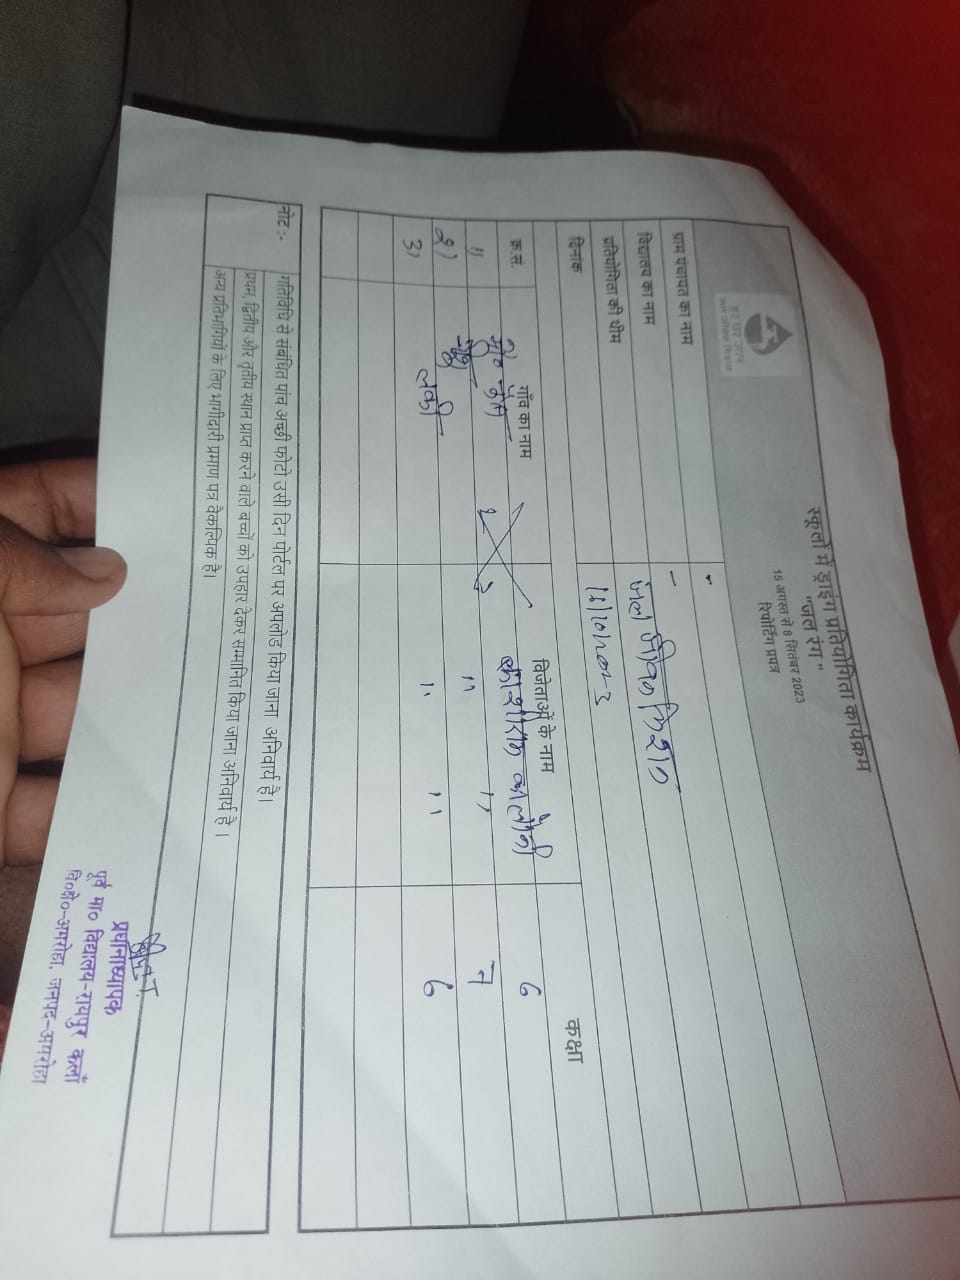 हर घर जल
जल जीवन मिशन
स्कूलों में ड्राइंग प्रतियोगिता कार्यक्रम
"जल रंग"
15 अगस्त से 8 सितंबर 2023
रिपोर्टिंग प्रपत्र
ग्राम पंचायत का नाम
विद्यालय का नाम -
प्रतियोगिता की थीम जल जीवन मिशन
दिनांक
क्र.सं. गाँव का नाम विजेताओं के नाम कक्षा
1) 6
2) " " 7
3) लकी " " 6
नोट :- गतिविधि से संबंधित पांच अच्छी फोटो उसी दिन पोर्टल पर अपलोड किया जाना अनिवार्य है।
प्रथम, द्वितीय और तृतीय स्थान प्राप्त करने वाले बच्चों को उपहार देकर सम्मानित किया जाना अनिवार्य है।
अन्य प्रतिभागियों के लिए भागीदारी प्रमाण पत्र वैकल्पिक है।
प्रधानाध्यापक
पूर्व मा० विद्यालय-रायपुर कलाँ
वि०क्षे०-अमरोहा, जनपद-अमरोहा